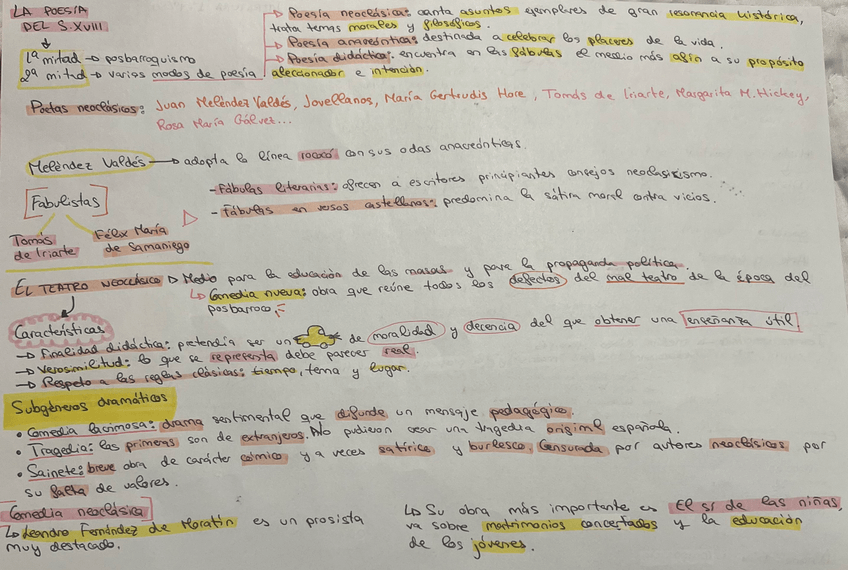 LA POESÍA
DEL S.XVIII
1ª mitad → posbarroquismo
2ª mitad → varios modos de poesía
→ Poesía neoclásica: canta asuntos ejemplares de gran resonancia histórica,
trata temas morales y filosóficos.
→ Poesía anacreóntica: destinada a celebrar los placeres de la vida.
→ Poesía didáctica: encuentra en las fábulas el medio más afín a su propósito
aleccionador e intención.
Poetas neoclásicos: Juan Meléndez Valdés, Jovellanos, María Gertrudis Hore, Tomás de Iriarte, Margarita M.Hickey,
Rosa María Gálvez...
Meléndez Valdés → adopta la línea rococó con sus odas anacreónticas.
[Fabulistas]
Tomás
de Iriarte
Félix María
de Samaniego
- Fábulas literarias: ofrecen a escritores principiantes consejos neoclasicismo.
- Fábulas en versos castellanos: predomina la sátira moral contra vicios.
EL TEATRO NEOCLÁSICO → Medio para la educación de las masas y para la propaganda política.
↳ Comedia nueva: obra que reúne todos los defectos del mal teatro de la época del
posbarroco.
Características
→ Finalidad didáctica: pretendía ser un de moralidad y decencia del que obtener una enseñanza útil
→ Verosimilitud: lo que se representa debe parecer real.
→ Respeto a las reglas clásicas: tiempo, tema y lugar.
Subgéneros dramáticos
• Comedia lacimosa: drama sentimental que difunde un mensaje pedagógico.
• Tragedia: las primeras son de extranjeros. No pudieron crear una tragedia original española.
• Sainete: breve obra de carácter cómico y a veces satírico y burlesco. Censurada por autores neoclásicos por
su falta de valores.
Comedia neoclásica
↳ Leandro Fernández de Moratín es un prosista
muy destacado.
↳ Su obra más importante es El sí de las niñas,
va sobre matrimonios concertados y la educación
de los jóvenes.